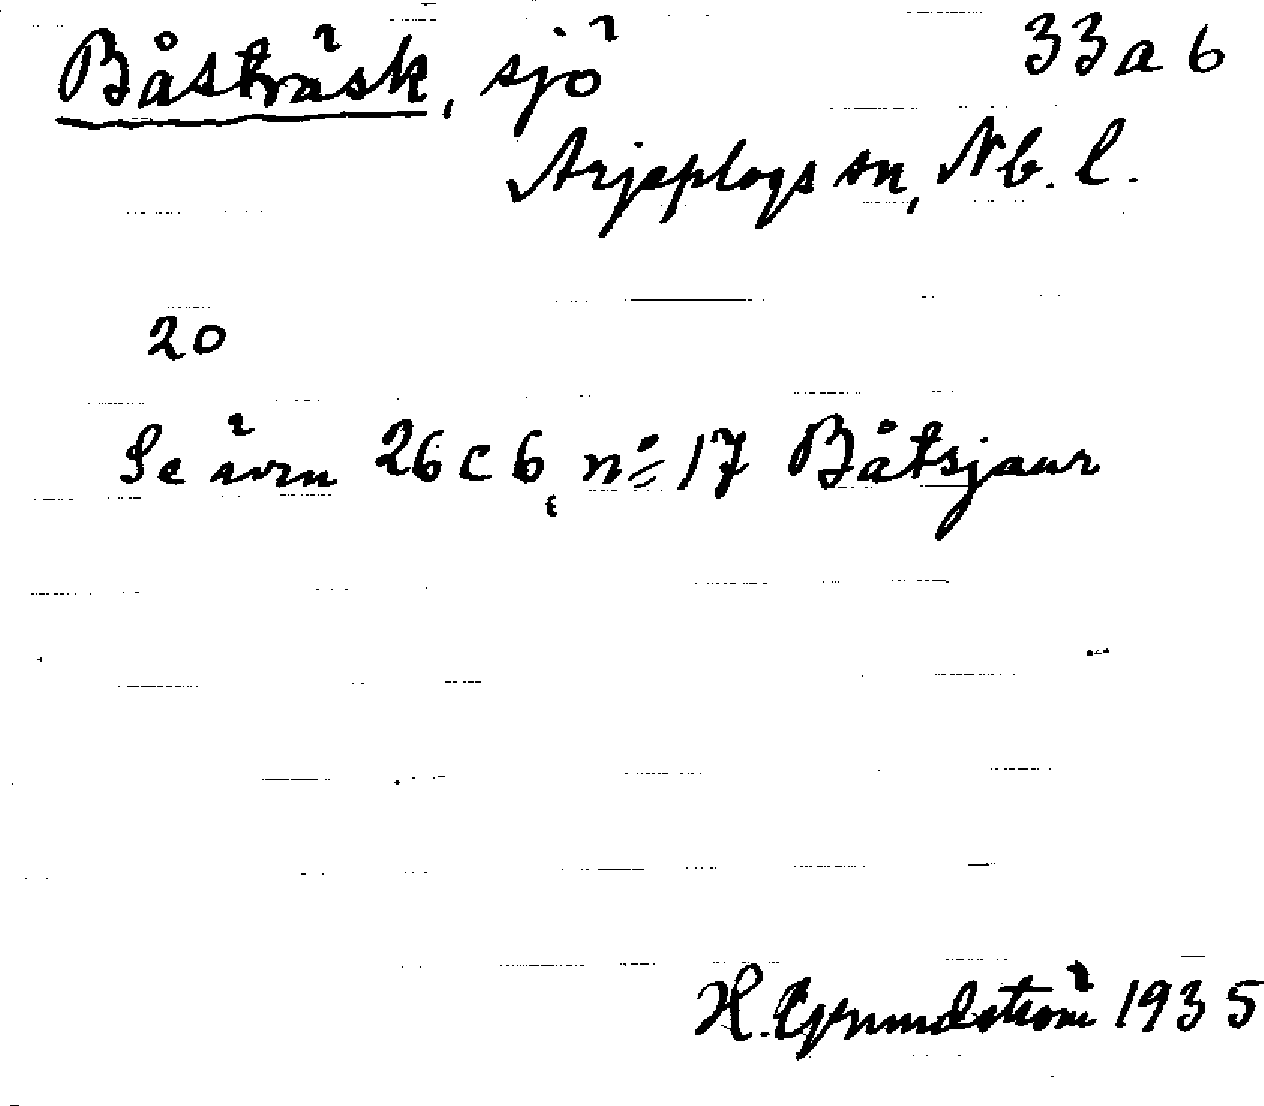 Båsträsk, sjö 33 a 6
Arjeplogs sn, Nb. l.
20
Se även 26 c 6, no 17 Båtsjaur
H. Grundström 1935